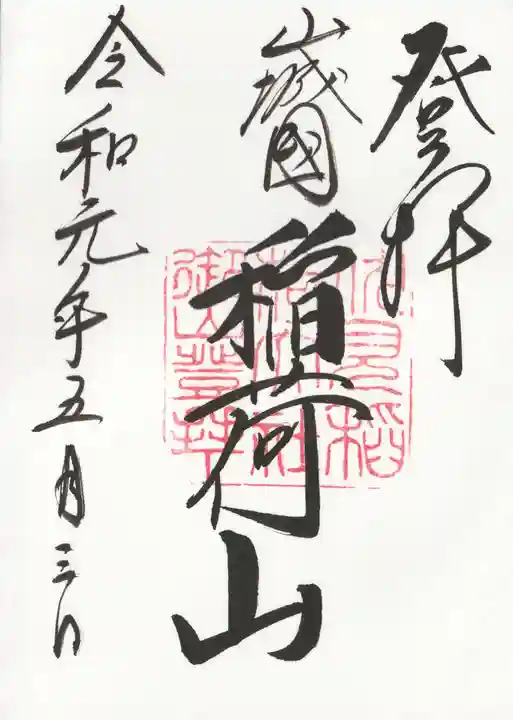 登拝
山城國
稲荷山
令和元年五月三日